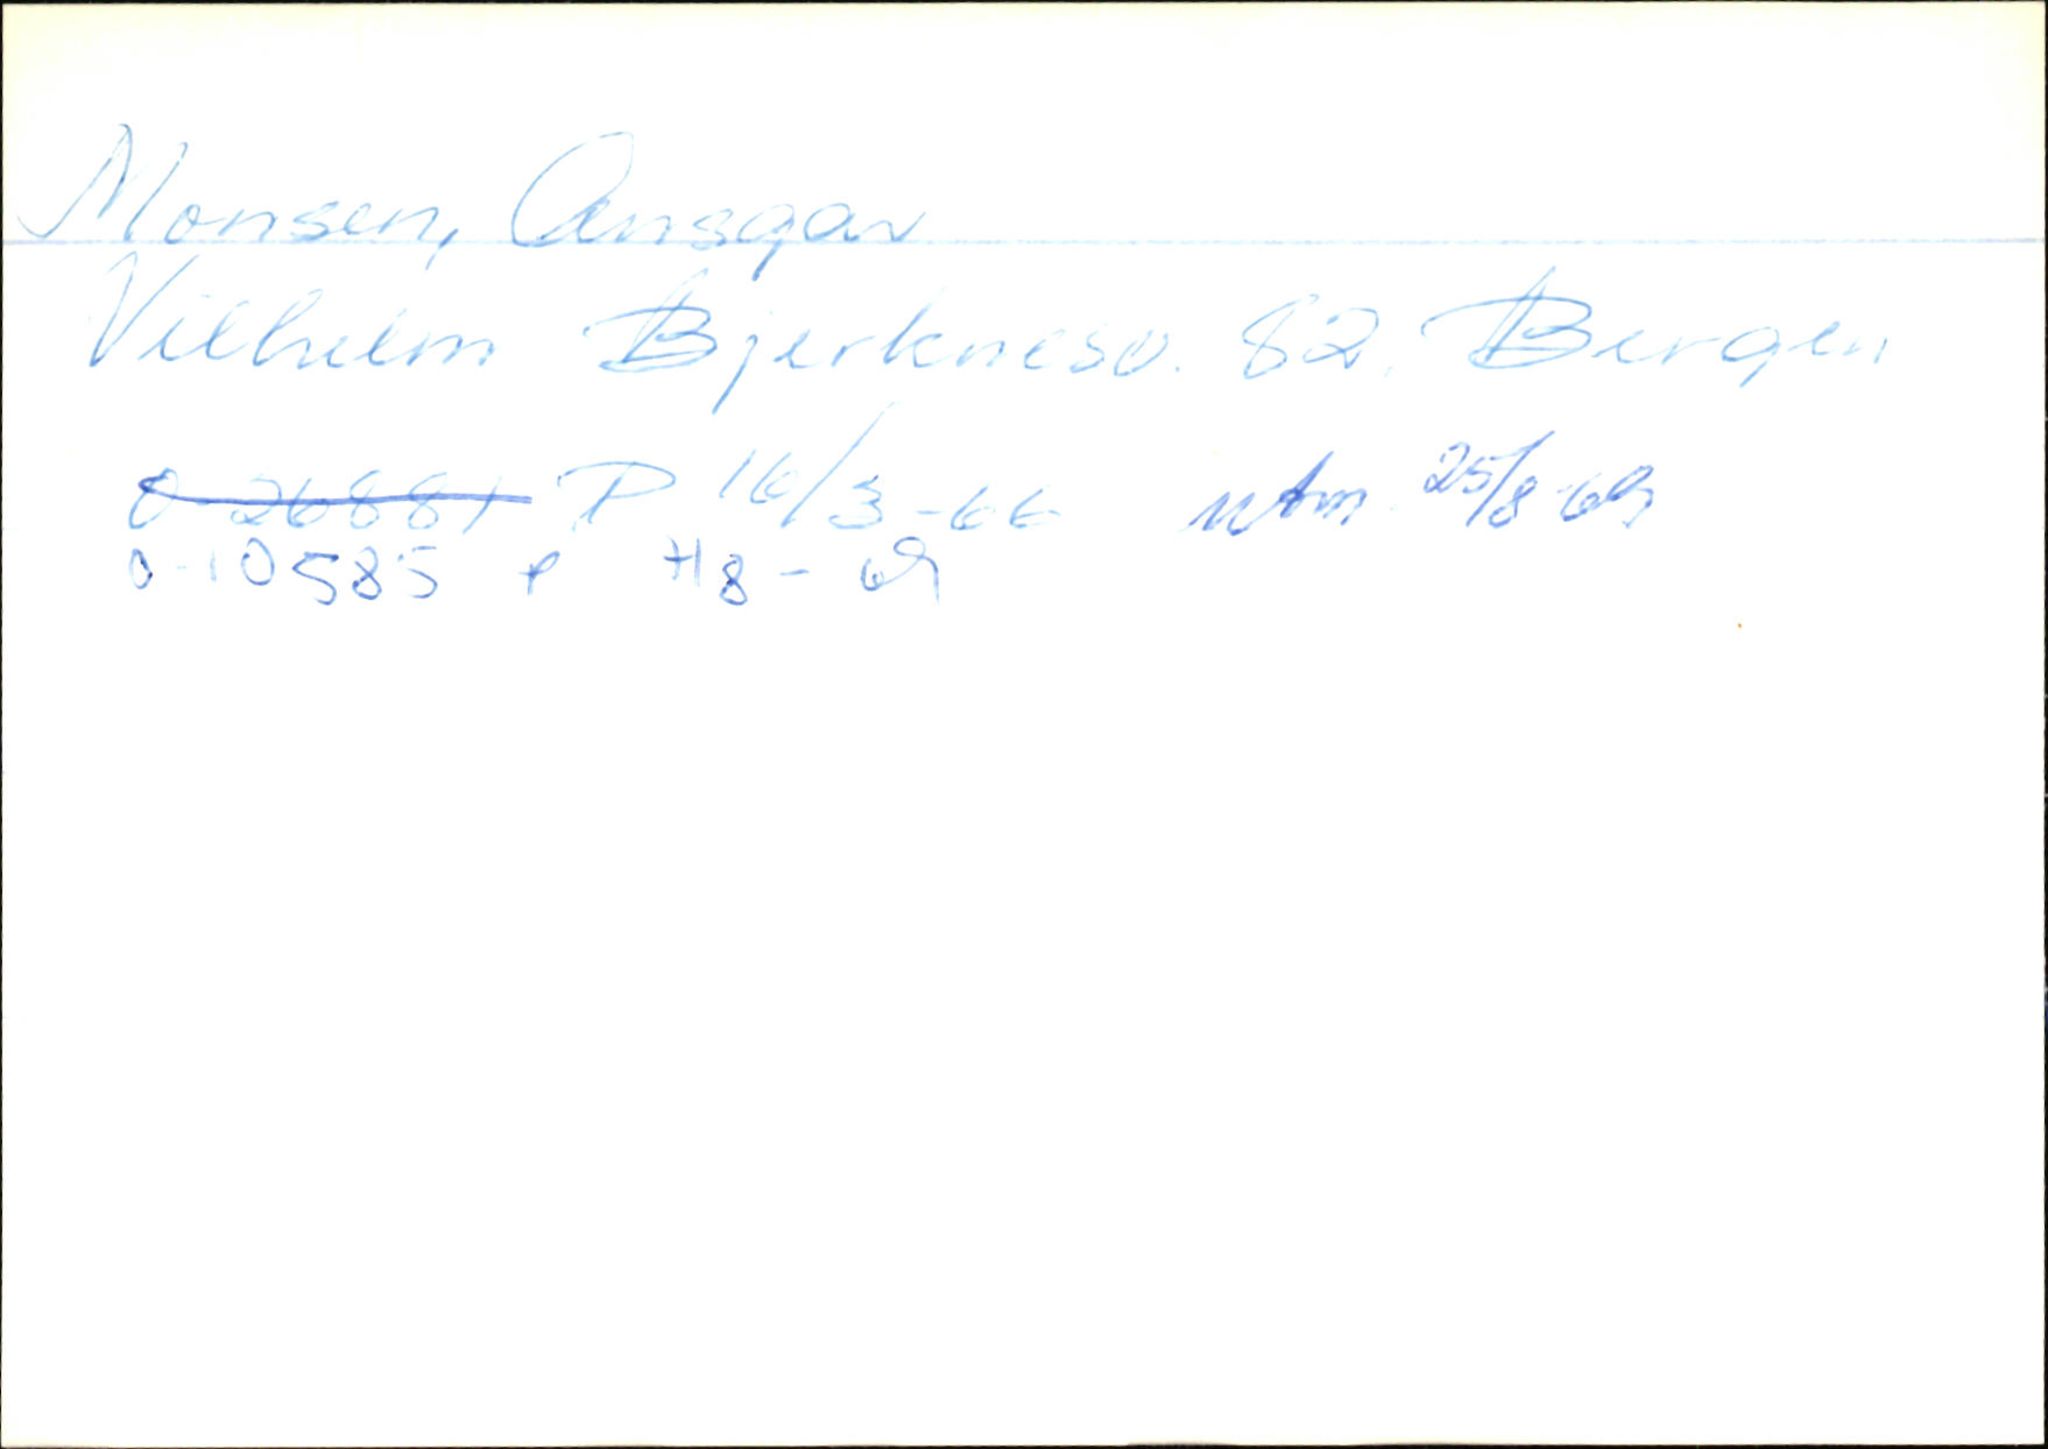 Monsen, Ansgar
Vilhelm Bjerknesv. 82, Bergen
O-26881 P 16/3-66 utm. 25/8-69
O-10585 P 4/8-69